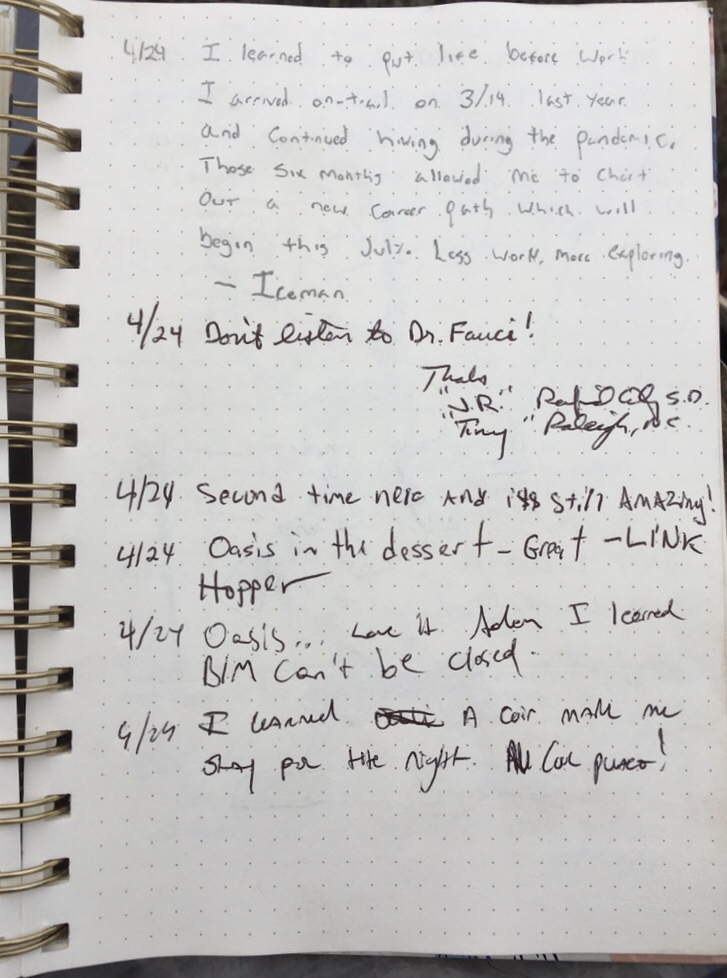 4/24 I learned to put life before work
I arrived on-trail on 3/14 last year
and continued hiking during the pandemic.
Those six months allowed me to chart
out a new career path which will
begin this July. Less work, more exploring.
- Iceman
4/24 Don't listen to Dr. Fauci!
"J.R." Rapid City S.D.
"Tiny" Raleigh, NC
4/24 Second time here and it's still AMAZing!
4/24 Oasis in the dessert - Great - LINK
Hopper
4/24 Oasis... Love it I learned
BLM can't be closed.
4/24 I learned A make me
stay for the night.